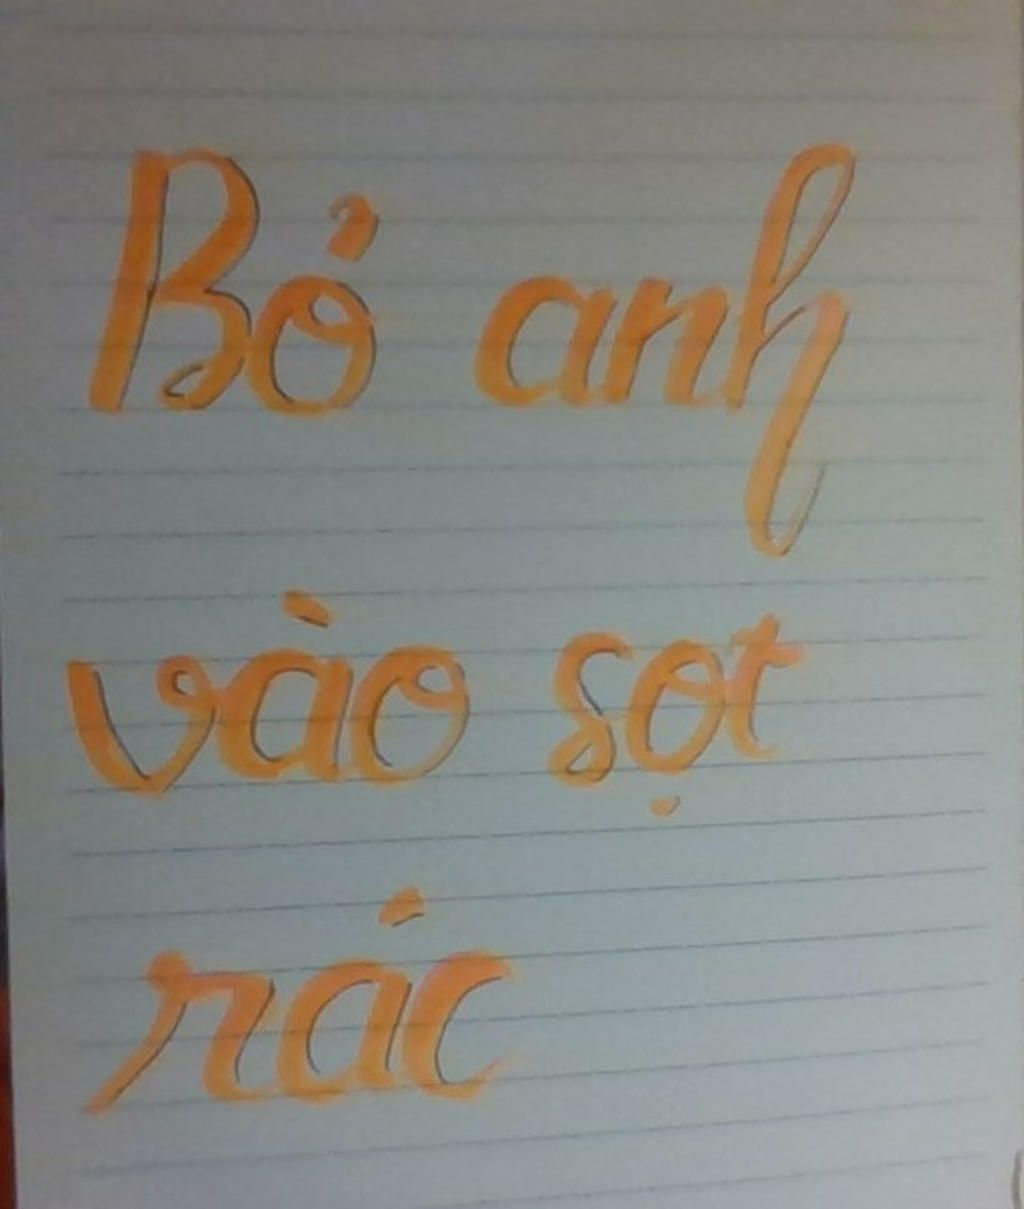 Bỏ anh
vào sọt
rác